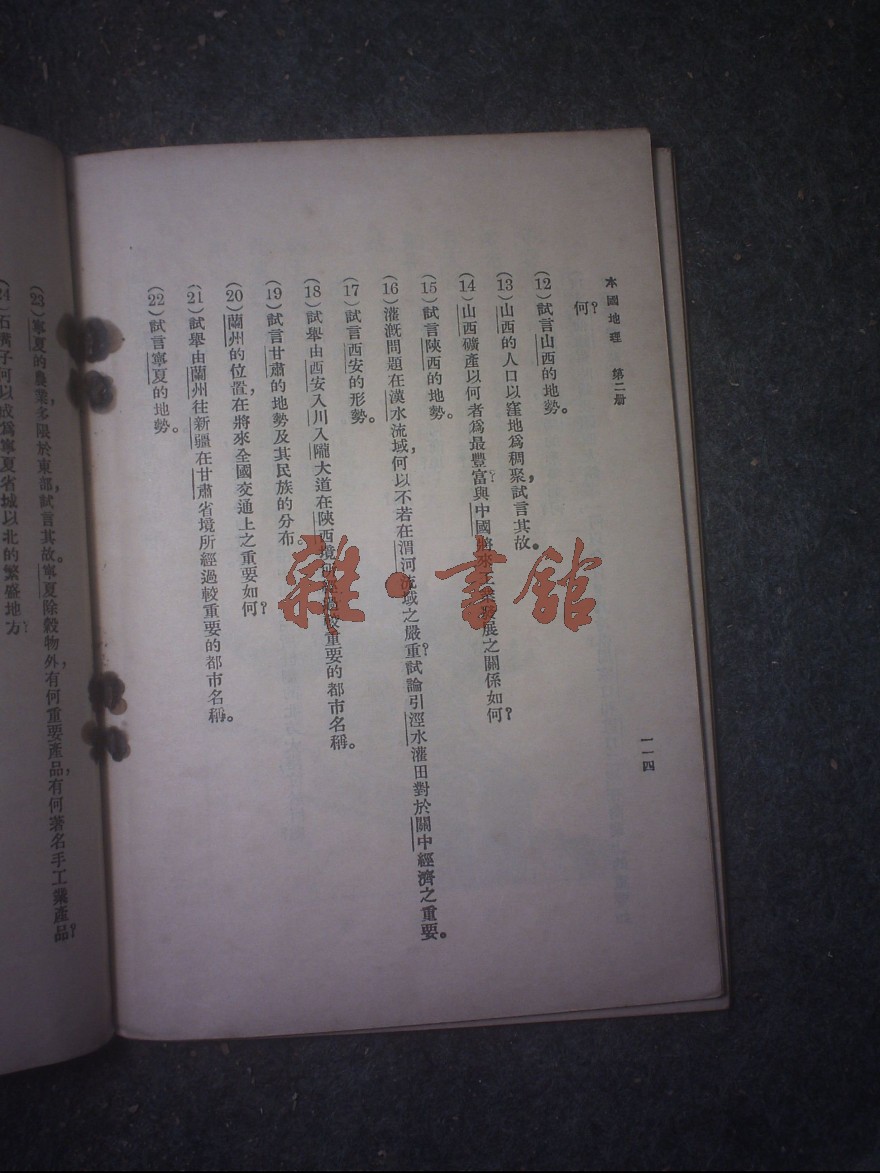 本國地理 第二册
一一四
何?
(12) 試言山西的地勢。
(13) 山西的人口以窪地爲稠聚,試言其故。
(14) 山西礦產以何者爲最豐富?與中國將來工業發展之關係如何?
(15) 試言陝西的地勢。
(16) 灌漑問題在漢水流域,何以不若在渭河流域之嚴重?試論引涇水灌田對於關中經濟之重要。
(17) 試言西安的形勢。
(18) 試舉由西安入川入隴大道在陝西境所經過較重要的都市名稱。
(19) 試言甘肅的地勢及其民族的分布。
(20) 蘭州的位置,在將來全國交通上之重要如何?
(21) 試舉由蘭州往新疆在甘肅省境所經過較重要的都市名稱。
(22) 試言寧夏的地勢。
(23) 寧夏的農業,多限於東部,試言其故。寧夏除穀物外,有何重要產品,有何著名手工業產品?
(24) 石嘴子何以成爲寧夏省城以北的繁盛地方?
雜·書館